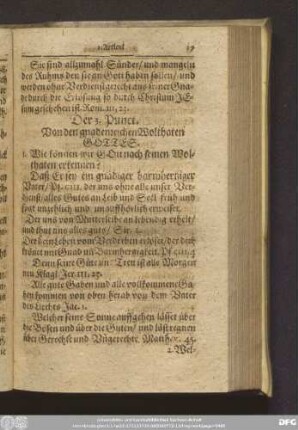 1. Articul. 19
Sie sind allzumahl Sünder/ und mangeln
des Ruhms den sie an Gott haben sollen/ und
werden ohne Verdienst gerecht aus seiner Gna-
de durch die Erlösung so durch Christum JE-
sum geschehen ist. Rom. III, 23.
Der 3. Punct.
Von den gnadenreichen Wolthaten
GOTTES.
1. Wie können wir GOtt nach seinen Wol-
thaten erkennen?
Daß Er sey ein gnädiger barmhertziger
Vater/ der uns ohne alle unser Ver-
dienst/ alles Gutes an Leib und Seel früh und
spät unzehlich und unauffhörlich erweiset.
Der uns von Mutterleibe an lebendig erhelt/
und thut uns alles guts/ Sir.
Der dein Leben vom Verderben erlöset/ der dich
krönet mit Gnad und Barmhertzigkeit. Ps.
Denn seine Güte und Treu ist alle Morgen
neu Klagl Jer. III. 23.
Alle gute Gaben und alle vollkommene Ga-
ben kommen von oben herab von dem Vater
des Liechts Jac. 1.
Welcher seine Sonne auffgehen lässet über
die Bösen und über die Guten/ und läst regnen
über Gerechte und Ungerechte Matth. 45.
2. Wel-
DFG